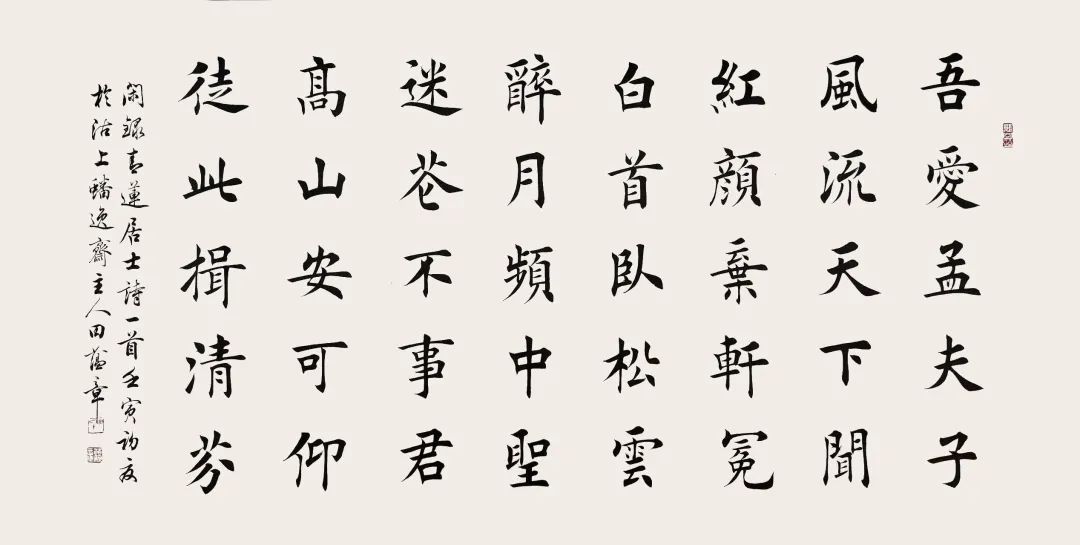 吾愛孟夫子
風流天下聞
紅顔棄軒冕
白首臥松雲
醉月頻中聖
迷花不事君
髙山安可仰
徒此揖清芬
閑録青蓮居士詩一首壬寅初夏
於沽上蟠逸齋主人田蘊章